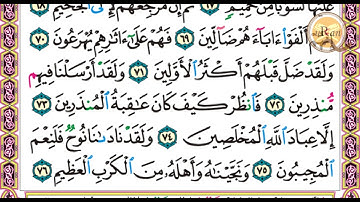 عَلَيْهَا لَشَوْبًا مِّنْ حَمِيمٍ ٦٧ ثُمَّ إِنَّ مَرْجِعَهُمْ لَإِلَى ٱلْجَحِيمِ
٦٨ إِنَّهُمْ أَلْفَوْا۟ ءَابَآءَهُمْ ضَآلِّينَ ٦٩ فَهُمْ عَلَىٰٓ ءَاثَٰرِهِمْ يُهْرَعُونَ ٧٠
وَلَقَدْ ضَلَّ قَبْلَهُمْ أَكْثَرُ ٱلْأَوَّلِينَ ٧١ وَلَقَدْ أَرْسَلْنَا فِيهِم
مُّنذِرِينَ ٧٢ فَٱنظُرْ كَيْفَ كَانَ عَٰقِبَةُ ٱلْمُنذَرِينَ ٧٣
إِلَّا عِبَادَ ٱللَّهِ ٱلْمُخْلَصِينَ ٧٤ وَلَقَدْ نَادَىٰنَا نُوحٌ فَلَنِعْمَ
ٱلْمُجِيبُونَ ٧٥ وَنَجَّيْنَٰهُ وَأَهْلَهُۥ مِنَ ٱلْكَرْبِ ٱلْعَظِيمِ ٧٦